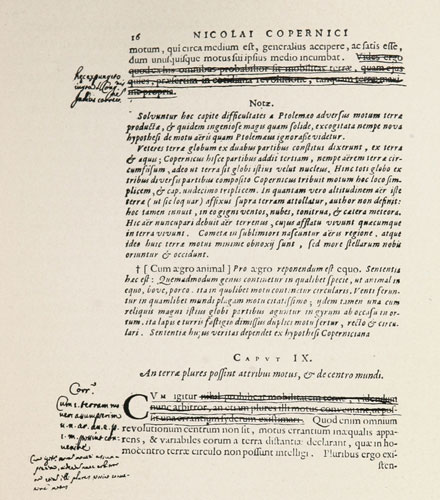 16 NICOLAI COPERNICI
motum, qui circa medium est, generalius accipere, ac satis esse,
dum unusquisque motus sui ipsius medio incumbat. Vides ergo
quod ex his omnibus probabilior sit mobilitas terræ, quam ejus
quies, præsertim in cotidiana revolutione, tanquam terræ maxi-
me propria.
Notæ.
Solvuntur hoc capite difficultates a Ptolemæo adversus motum terræ
productæ, & quidem ingeniose magis quam solide, excogitata nempe nova
hypothesi de motu aëris quam Ptolemæus ignorasse videtur.
Veteres terræ globum ex duabus partibus constitui dixerunt, ex terra
& aqua; Copernicus hisce partibus addit tertiam, nempe aërem terræ cir-
cumfusum, adeo ut terra sit globi istius velut nucleus. Hinc toti globo ex
tribus diversis partibus composito Copernicus tribuit motum hoc loco sim-
plicem, & cap. undecimo triplicem. In quantam vero altitudinem aër iste
terræ (ut sic loquar) affixus supra terram attollatur, author non definit:
hoc tamen innuit, in eo gigni ventos, nubes, tonitrua, & cætera meteora.
Hic aër nuncupari debuit aër terrenus, cujus afflatu vivunt quæcumque
in terra vivunt. Cometæ in sublimiore nascuntur aëris regione. atque
ideo huic terræ motus minime obnoxii sunt, sed more stellarum nobis
oriuntur & occidunt.
† [ Cum ægro animal ] Pro ægro reponendum est equo. Sententia
hæc est: Quemadmodum genus continetur in qualibet specie, ut animal in
equo, bove, porco. ita in quolibet motu continetur circularis. Venti ferun-
tur in quamlibet mundi plagam motu citatissimo; iidem tamen una cum
reliquis magni istius globi partibus aguntur in gyrum ab occasu in or-
tum. ita lapis e turris fastigio dimissus duplici motu fertur, recto & circu-
lari. Sententia hujus veritas dependet ex hypothesi Copernicana
CAPUT IX.
An terræ plures possint attribui motus, & de centro mundi.
Corr.
CUM igitur nihil prohibeat mobilitatem terræ, videndum
nunc arbitror, an etiam plures illi motus conveniant, ut pos-
sit una errantium syderum existimari. Quod enim omnium
revolutionum centrum non sit, motus errantium inæqualis appa-
rens, & variabiles eorum a terra distantiæ declarant, quæ in ho-
mocentro terræ circulo non possunt intelligi. Pluribus ergo exi-
sten-